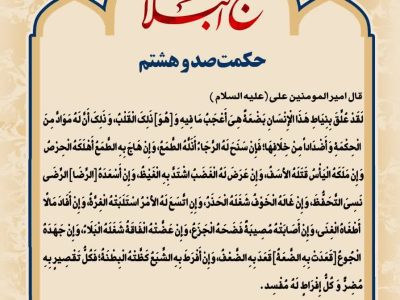 نهج البلا
حکمت صد و هشتم
قال امیر المومنین علی (علیه السلام )
لَقَدْ عُلِّقَ بِنِيَاطِ هَذَا الْإِنْسَانِ بَضْعَةٌ هِيَ أَعْجَبُ مَا فِيهِ وَ [هُوَ] ذَلِكَ الْقَلْبُ، وَ ذَلِكَ أَنَّ لَهُ مَوَادَّ مِنَ
الْحِكْمَةِ وَ أَضْدَاداً مِنْ خِلَافِهَا؛ فَإِنْ سَنَحَ لَهُ الرَّجَاءُ، أَذَلَّهُ الطَّمَعُ، وَ إِنْ هَاجَ بِهِ الطَّمَعُ أَهْلَكَهُ الْحِرْصُ
وَ إِنْ مَلَكَهُ الْيَأْسُ قَتَلَهُ الْأَسَفُ، وَ إِنْ عَرَضَ لَهُ الْغَضَبُ اشْتَدَّ بِهِ الْغَيْظُ، وَ إِنْ أَسْعَدَهُ [الرِّضَا] الرِّضَى
نَسِيَ التَّحَفُّظَ، وَ إِنْ غَالَهُ الْخَوْفُ شَغَلَهُ الْحَذَرُ، وَ إِنِ اتَّسَعَ لَهُ الْأَمْرُ اسْتَلَبَتْهُ الْغِرَّةُ، وَ إِنْ أَفَادَ مَالًا
أَطْغَاهُ الْغِنَى، وَ إِنْ أَصَابَتْهُ مُصِيبَةٌ فَضَحَهُ الْجَزَعُ، وَ إِنْ عَضَّتْهُ الْفَاقَةُ شَغَلَهُ الْبَلَاءُ، وَ إِنْ جَهَدَهُ
الْجُوعُ [قَعَدَتْ بِهِ الضَّعَةُ] قَعَدَ بِهِ الضَّعْفُ، وَ إِنْ أَفْرَطَ بِهِ الشِّبَعُ كَظَّتْهُ الْبِطْنَةُ؛ فَكُلُّ تَقْصِيرٍ بِهِ
مُضِرٌّ وَ كُلُّ إِفْرَاطٍ لَهُ مُفْسِد .